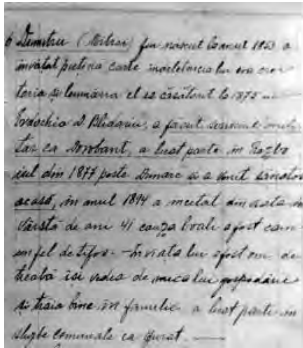 6 Dumitru (Mitrai) fu născut la anul 1853 a
învățat puțină carte îndeletnicirea lui era croi
toria de lumânărar el se căsători la 1875 cu
Evdochia D Bledariu, a făcut serviciul mili
tar ca Dorobanț, a luat parte în războ
iul din 1877 peste Dunăre și a venit sănătos
acasă, în anul 1894 a încetat din viață în
vârstă de ani 41 cauza boalei a fost cam
un fel de tifos. - În viața lui a fost om de
treabă își vedea de munca lui gospodărie
și trăia bine în familie a luat parte în
slujbe comunale ca jurat.